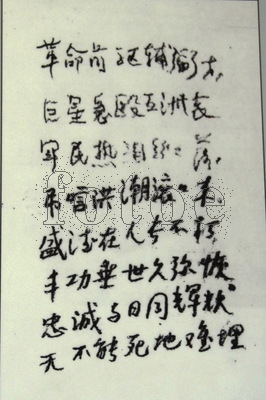 革命前驱辅弼才
巨星急殒五洲哀
军民热泪纷纷落
吊唁洪潮滚滚来
盛德在人 不朽
丰功垂世久弥恢
忠诚与日同辉耀
天不能死地难埋
fotoe